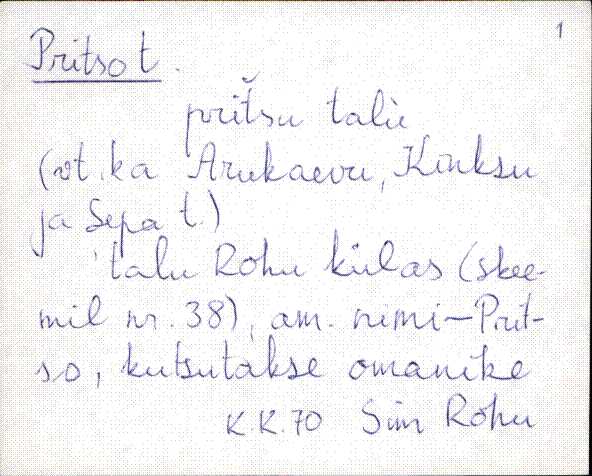 1
Pritso t.
prit̆su talu
(vt. ka Arukaevu, Kinksu
ja Sepa t.)
talu Rohu külas (skee-
mil nr. 38), am. nimi — Prit-
so, kutsutakse omanike
K.K. 70 Sim Rohu